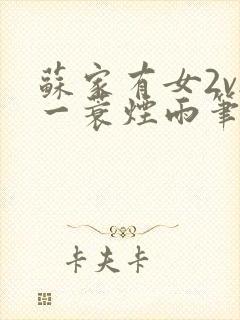 蘇家有女2v
一蓑煙雨筆
卡夫卡